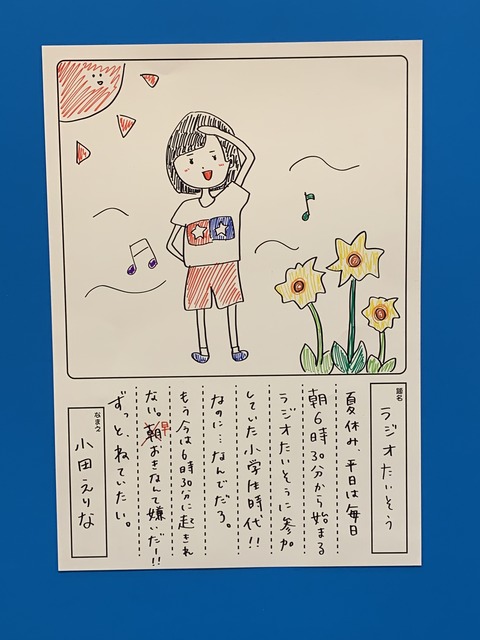 題名
ラジオたいそう
夏休み、平日は毎日
朝6時30分から始まる
ラジオたいそうに参加
していた小学生時代!!
なのに…なんでだろ。
もう今は6時30分に起きれ
ない。早おきなんて嫌いだー!!
ずっと、ねていたい。
なまえ
小田えりな